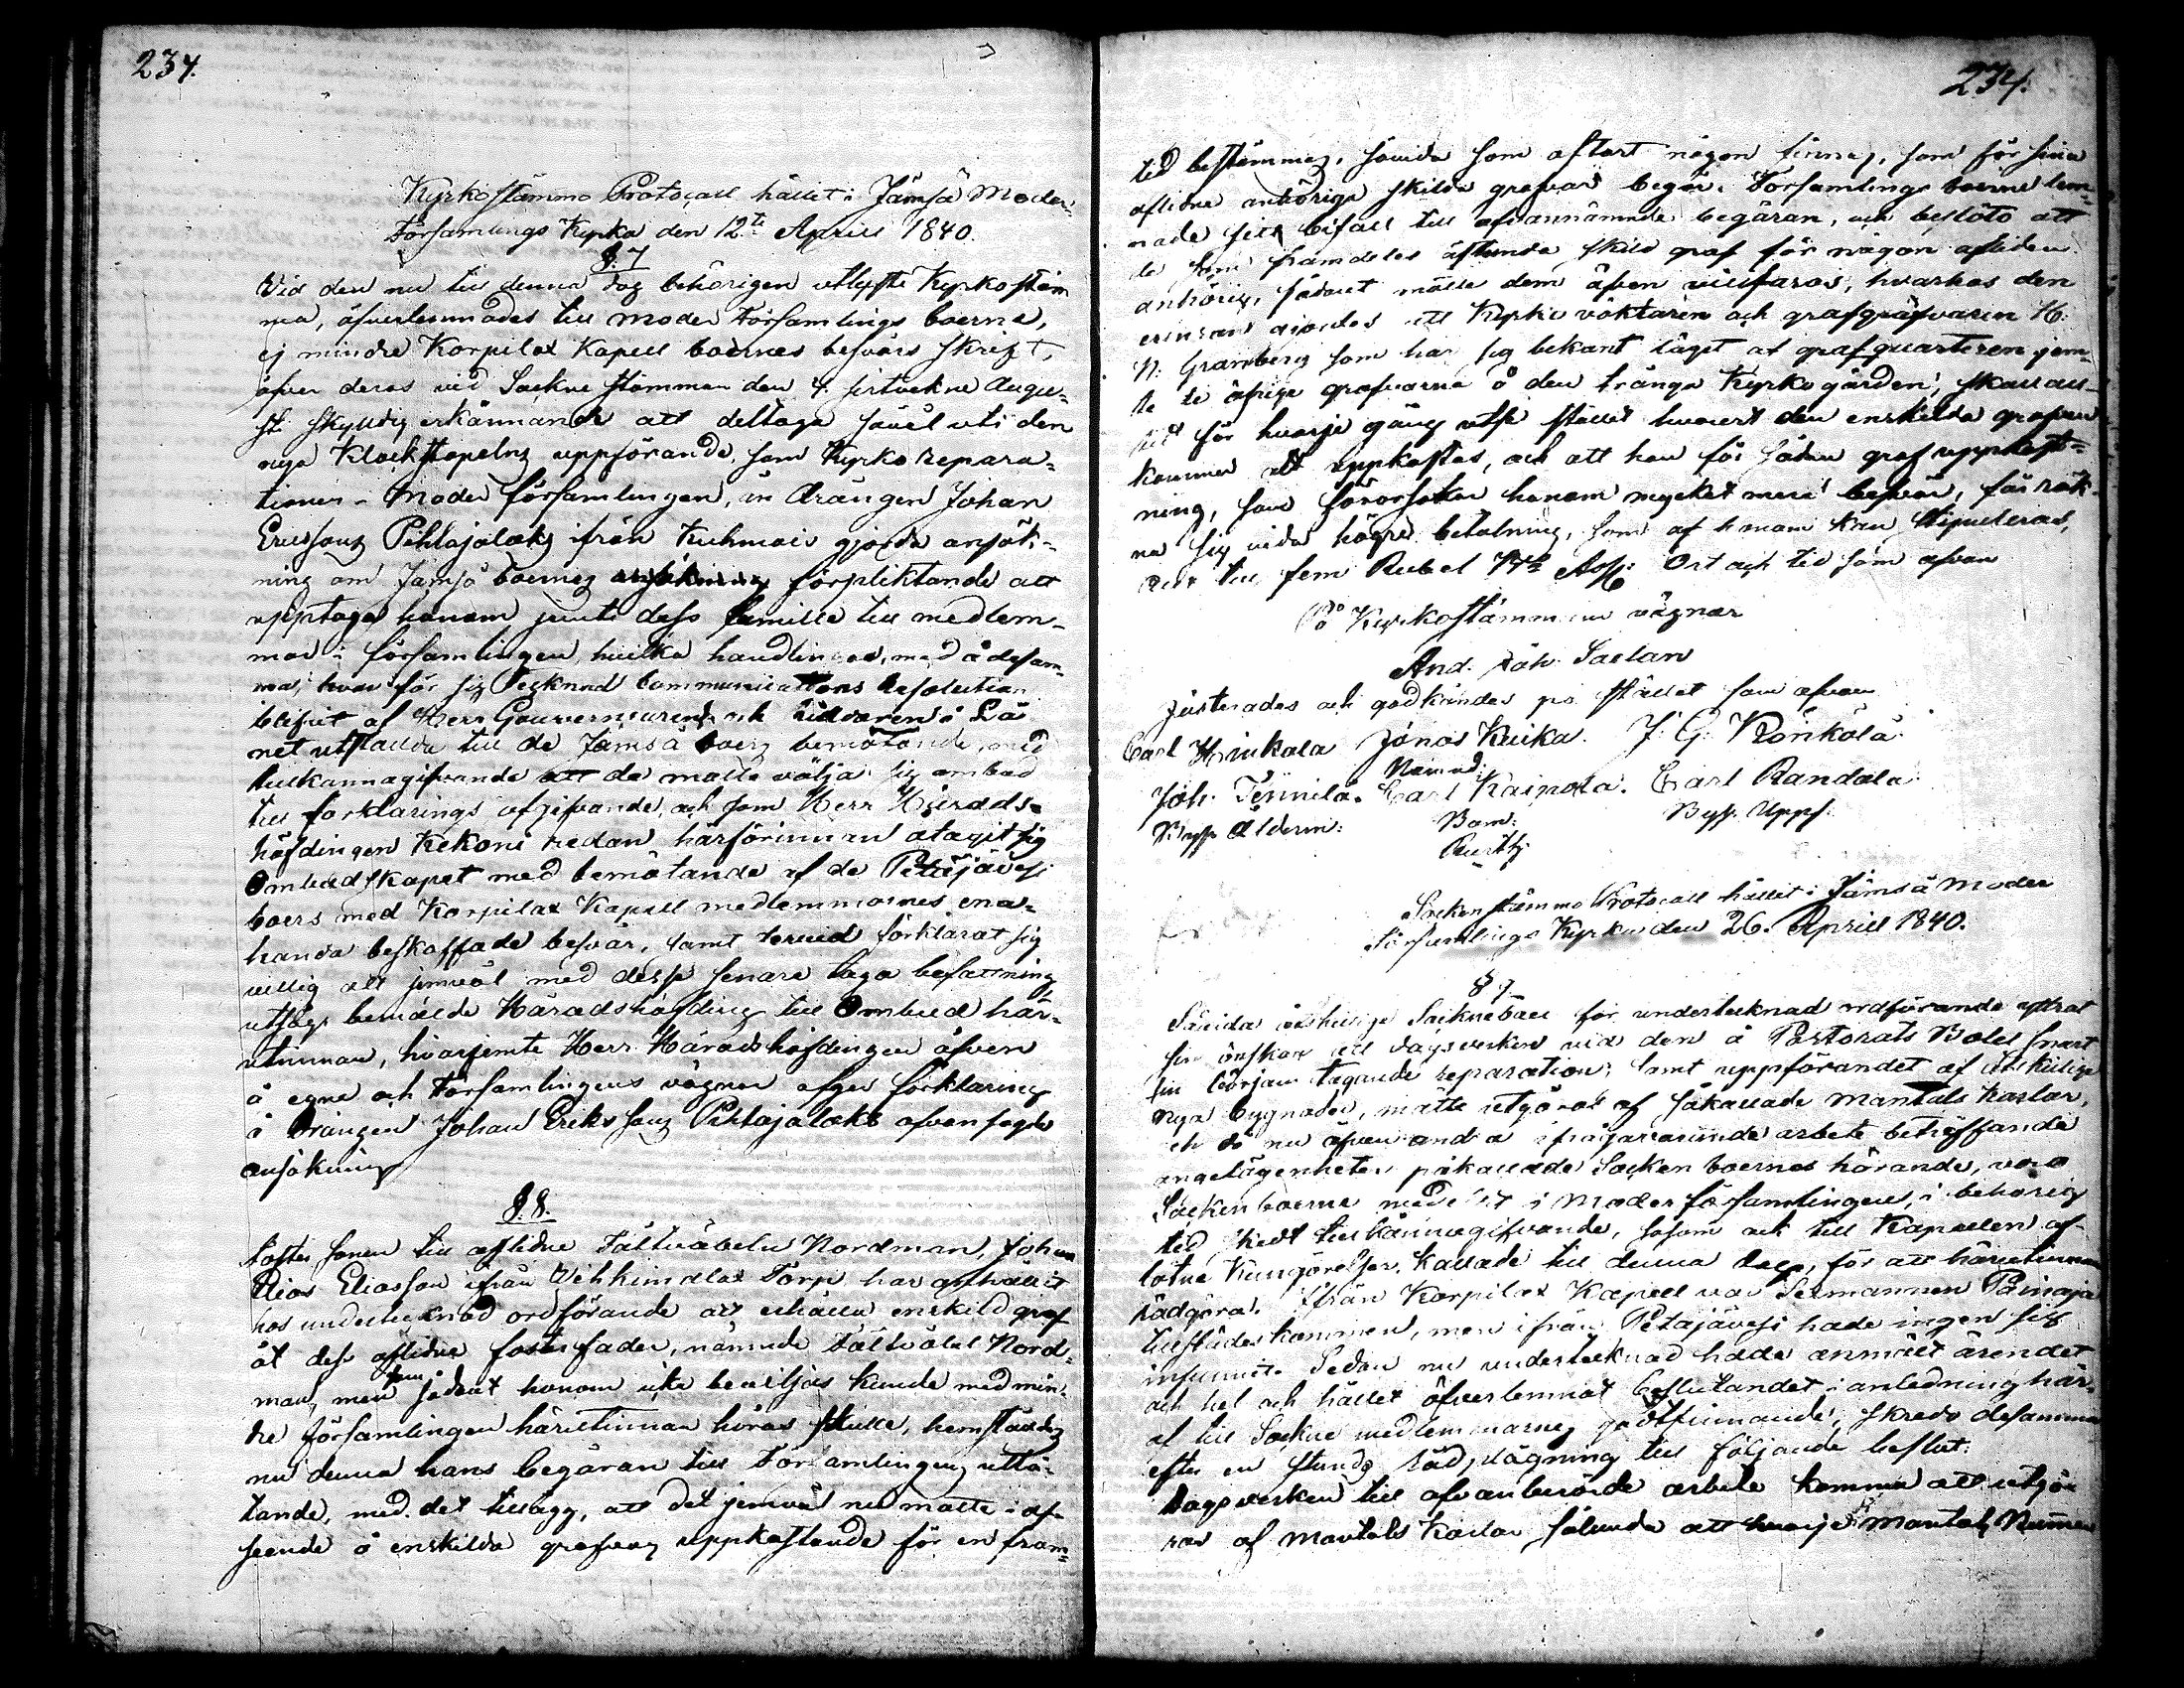 234.
Kyrkostämmo Protocall hållet i Jämsä Moder
Församlings Kyrka den 12te April 1840.
§. 7
Vid den nu till denna dag behörigen utlyste Kyrkostäm
ma, öfverlemnades till Moder Församlings boerne,
ej mindre Korpilax Kapell boernes besvärs skrift,
öfver deras vid Sockne stämman den 4. sistvekne Augu=
sti skyldig erkännande att deltaga såväl uti den
nya Klockstapelns uppförande, som Kyrko repara=
tionen i Moder församlingen, än drängen Johan
Erikssons Pihlajalaks ifrån Kuhmois gjorda ansök=
ning om Jämsä boernes förpliktande att
upptaga honom jemte dess familie till medlem=
mar i församlingen, hvilka handlingar, med å desam
ma, hvar för sig Tecknad Communications Resolution
blifvit af Herr Gouverneuren och Riddaren i Lä
net utstälda till de Jämsä boers bemötande, med
tillkännagifvande att de måtte välja sig ombud
till förklarings afgifvande, och som Herr Härads=
höfdingen Kekoni redan härförinnan åtagit sig
Ombudskapet med bemötande af de Petäjävesi
boers med Korpilax Kapell medlemmarnes ena=
handa beskaffade besvär, samt förklarat sig
villig att jemväl med desse senare taga befattning
utsågs bemälde Häradshöfding till Ombud här=
utinnan, hvarjemte Herr Häradshöfdingen äfven
å egne och Församlingens vägnar afger förklaring
å Drängen Johan Erikssons Pihlajalaks ofvansagde
ansökning
§. 8.
Foster sonen till aflidne Fältväbeln Nordman, Johan
Elias Eliasson ifrån Vihkimalax Torp har anhållit
hos undertecknad ordförande att erhålla enskild graf
åt dess aflidne foster fader, nämnde Fältväbel Nord=
man, men som sådant honom icke beviljas kunde med min=
dre församlingen härutinnan höras skulle, hemstäldes
nu denna hans begäran till Församlingens utlå=
tande, med det tillägg, att det jemväl nu måtte i af=
seende å enskilda grafvars uppkastande för en fram=
234.
tid bestämmas, såvida som oftast någon finnes, som för sina
aflidne anhöriga skilda grafvar begär. Församlings boerne lem=
nade sitt bifall till ofvannämnde begäran, och beslöto att
de som framdeles åstunda skild graf för någon afliden
anhörig, sådant måtte dem äfven villfaras, hvarhos den
erinran gjordes att Kyrko väktaren och grafgräfvaren H.
N. Gramberg som har sig bekant läget af grafquarteren jem=
te de öfriga grafvarne å den trånga Kyrkogården, skall all=
tid för hvarje gång utse stället hvarest den enskilda grafven
kommer att uppkastas, och att han för sådan graf uppkast=
ning, som förorsakar honom mycket mera besvär, får räk=
na sig vida högre betalning, som af honom kan stipuleras,
ända till fem Rubel Bco Ass: Ort och tid som ofvan
På Kyrkostämmans vägnar
And. Joh. Saxlan
Justerades och godkändes på stället som ofvan
Carl Hinkala Jonas Kuika. J. G. Rönkölä
Nämnd:
Joh. Tännilä. Carl Kaipola. Carl Randala
By Ålderm: Bom: Bys. Upps:
Rusth
Sockenstämmo Protocall hållet i Jämsä Moder
Församlings Kyrka den 26. April 1840.
§ 9
Såvida åtskilige Sockneboer för undertecknad ordförande yttrat
sin önskan att dagsverken vid den å Pastorats Bolet snart
sin början tagande reparation, samt uppförandet af åtskilige
nya bygnader, måtte utgöras af såkallade Mantals Karlar,
och då nu äfven andra ifrågavarande arbete beträffande
angelägenheter påkallade Socken boernes hörande, voro
Socken boerne medelst i Moder församlingen, i behörig
tid skedt tillkännagifvande, såsom ock till Kapellen af
låtne Kungörelser, kallade till denna dag, för att härutinnan
rådgöra. Ifrån Korpilax Kapell var Sexmannen Päinaja
tillstädeskommen, men ifrån Petäjävesi hade ingen sig
infunnit. Sedan nu undertecknad hade anmält ärendet
och hel och hållet öfverlemnat beslutandet i anledning här=
af till Sockne medlemmarnes godtfinnande, skredo desamma
efter en stunds rådplägning till följande beslut:
Dagsverken till ofvanberörde arbete komma att utgö
ras af Mantals Karlar sålunda att hvarje Mantals Nummer